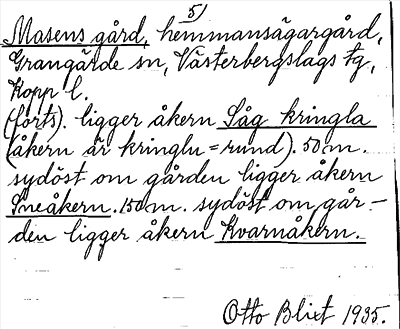 5/
Masens gård, hemmansägargård,
Grangärde sn, Västerbergslags tg,
Kopp l.
(forts). ligger åkern Låg kringla
(åkern är kringlu = rund). 50 m.
sydöst om gården ligger åkern
Sneåkern. 150 m. sydöst om går-
den ligger åkern Kvarnåkern.
Otto Blixt 1935.